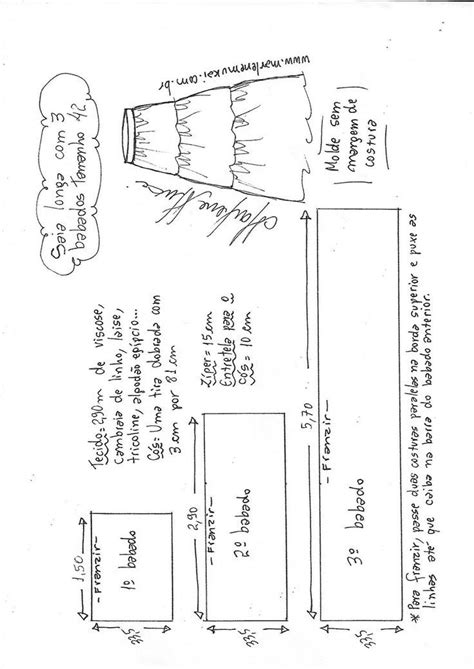 Saia longa com 3
babados tamanho 42
www.marlenemukai.com.br
Marlene Mukai
Molde sem
margem de
costura
Tecido = 2,90 m de viscose,
Cambraia de linho, laise,
tricoline, algodão egípcio...
Cós = Uma tira dobrada com
3 cm por 81 cm
Zíper = 15 cm
Entretela para o
cós = 10 cm
1,50
- Franzir -
1º babado
33,5
2,90
- Franzir -
2º babado
33,5
5,70
- Franzir -
3º babado
33,5
* Para franzir, passe duas costuras paralelas na borda superior e puxe as
linhas até que caiba na barra do babado anterior.